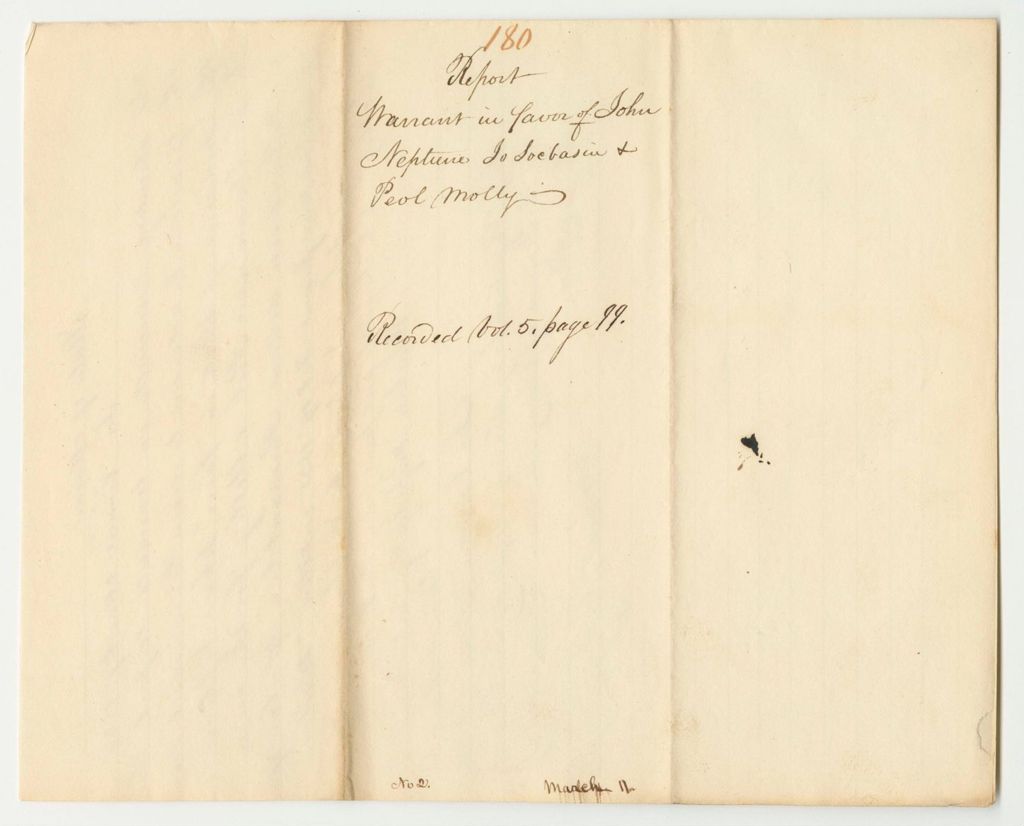 180
Report
Warrant in favor of John
Neptune Jo Socbasin &
Peol Molly
Recorded Vol. 5. page 99.
No 2. March 11.